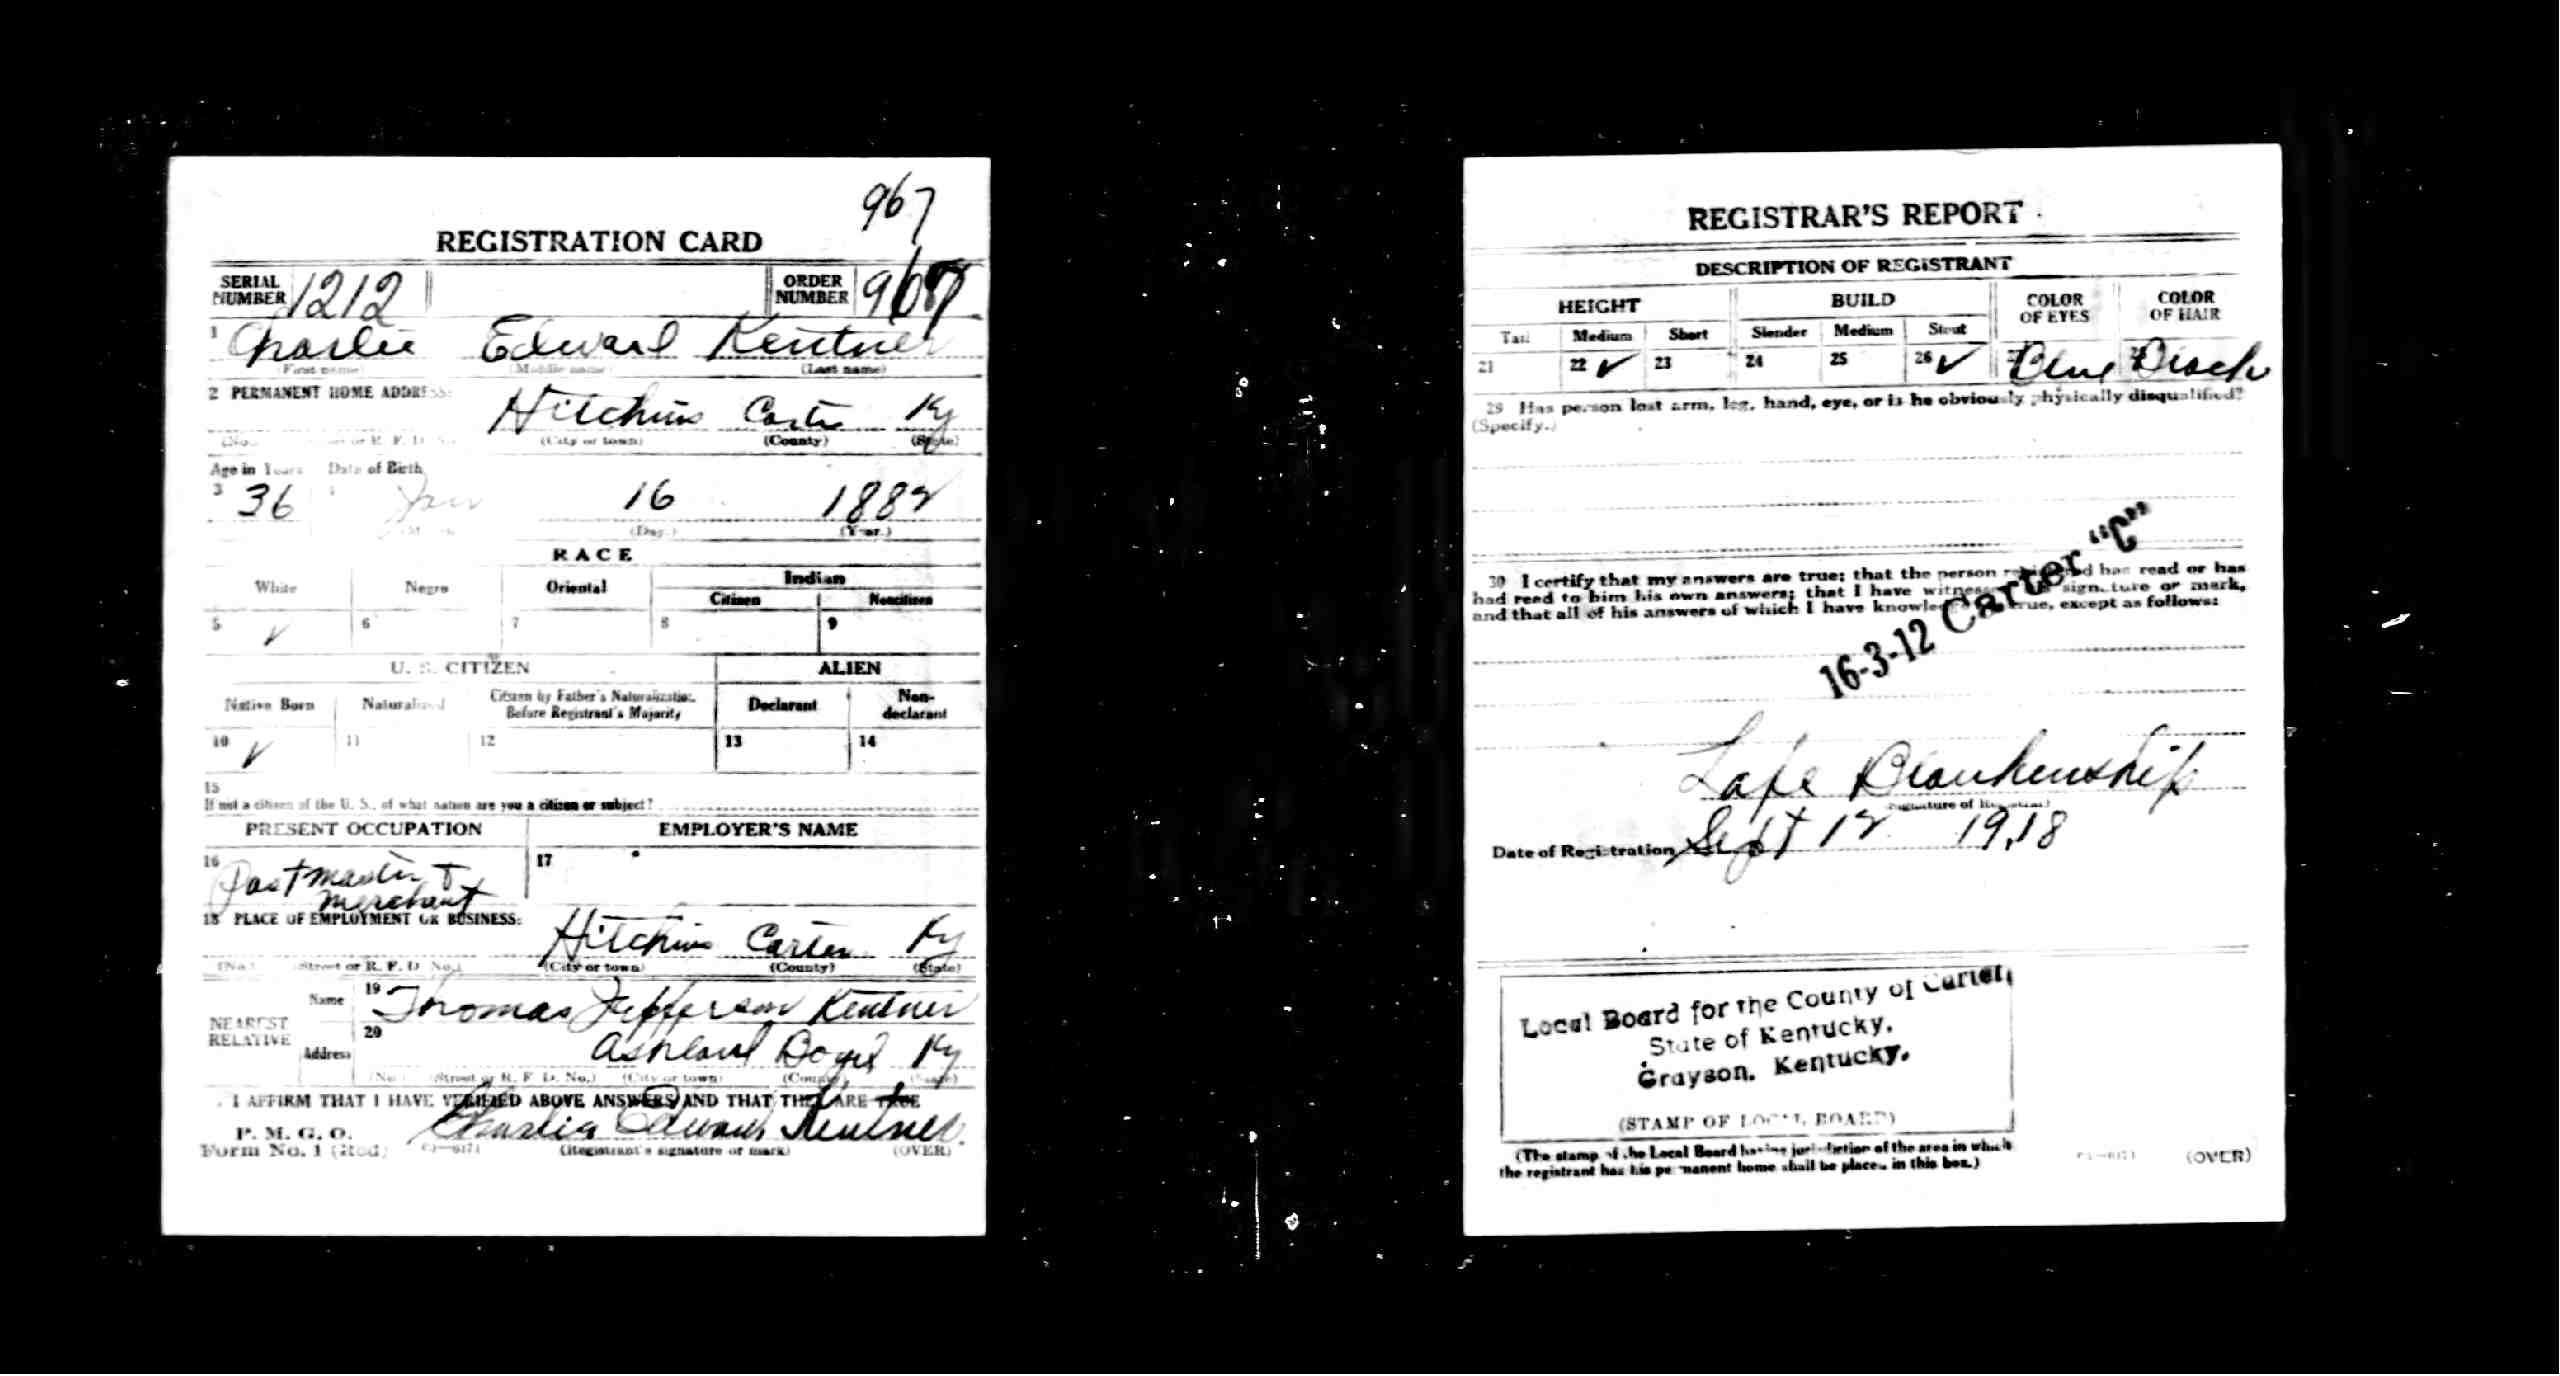 967
REGISTRATION CARD
SERIAL NUMBER 1212 ORDER NUMBER 967
1 Charlie Edward Kentner
(First name) (Middle name) (Last name)
2 PERMANENT HOME ADDRESS:
Hitchins Carter Ky
(No.) or R. F. D. (City or town) (County) (State)
Age in Years Date of Birth
3 36 Jan 16 1882
(Day.) (Year.)
RACE
White Negro Oriental Indian
Citizen Noncitizen
5 ✓ 6 7 8 9
U. S. CITIZEN ALIEN
Native Born Naturalized Citizen by Father's Naturalization Before Registrant's Majority Declarant Non-declarant
10 ✓ 11 12 13 14
15
If not a citizen of the U. S., of what nation are you a citizen or subject?
PRESENT OCCUPATION EMPLOYER'S NAME
16 Postmaster & 17
Merchant
18 PLACE OF EMPLOYMENT OR BUSINESS:
Hitchins Carter Ky
(No.) (Street or R. F. D. No.) (City or town) (County) (State)
NEAREST RELATIVE Name 19 Thomas Jefferson Kentner
Address 20 Ashland Boyd Ky
(No.) (Street or R. F. D. No.) (City or town) (County) (State)
I AFFIRM THAT I HAVE VERIFIED ABOVE ANSWERS AND THAT THEY ARE TRUE
P. M. G. O.
Form No. 1 (Red) Charlie Edward Kentner
(Registrant's signature or mark) (OVER)
REGISTRAR'S REPORT
DESCRIPTION OF REGISTRANT
HEIGHT BUILD COLOR OF EYES COLOR OF HAIR
Tall Medium Short Slender Medium Stout
21 22 ✓ 23 24 25 26 ✓ Blue Black
29 Has person lost arm, leg, hand, eye, or is he obviously physically disqualified?
(Specify.)
30 I certify that my answers are true; that the person registered has read or has
had read to him his own answers; that I have witnessed his signature or mark,
and that all of his answers of which I have knowledge are true, except as follows:
16-3-12 Carter "C"
Lafe Blankenship
(Signature of Registrar)
Date of Registration Sept 12 1918
Local Board for the County of Carter,
State of Kentucky,
Grayson, Kentucky.
(STAMP OF LOCAL BOARD)
(The stamp of the Local Board having jurisdiction of the area in which
the registrant has his permanent home shall be placed in this box.)
(OVER)